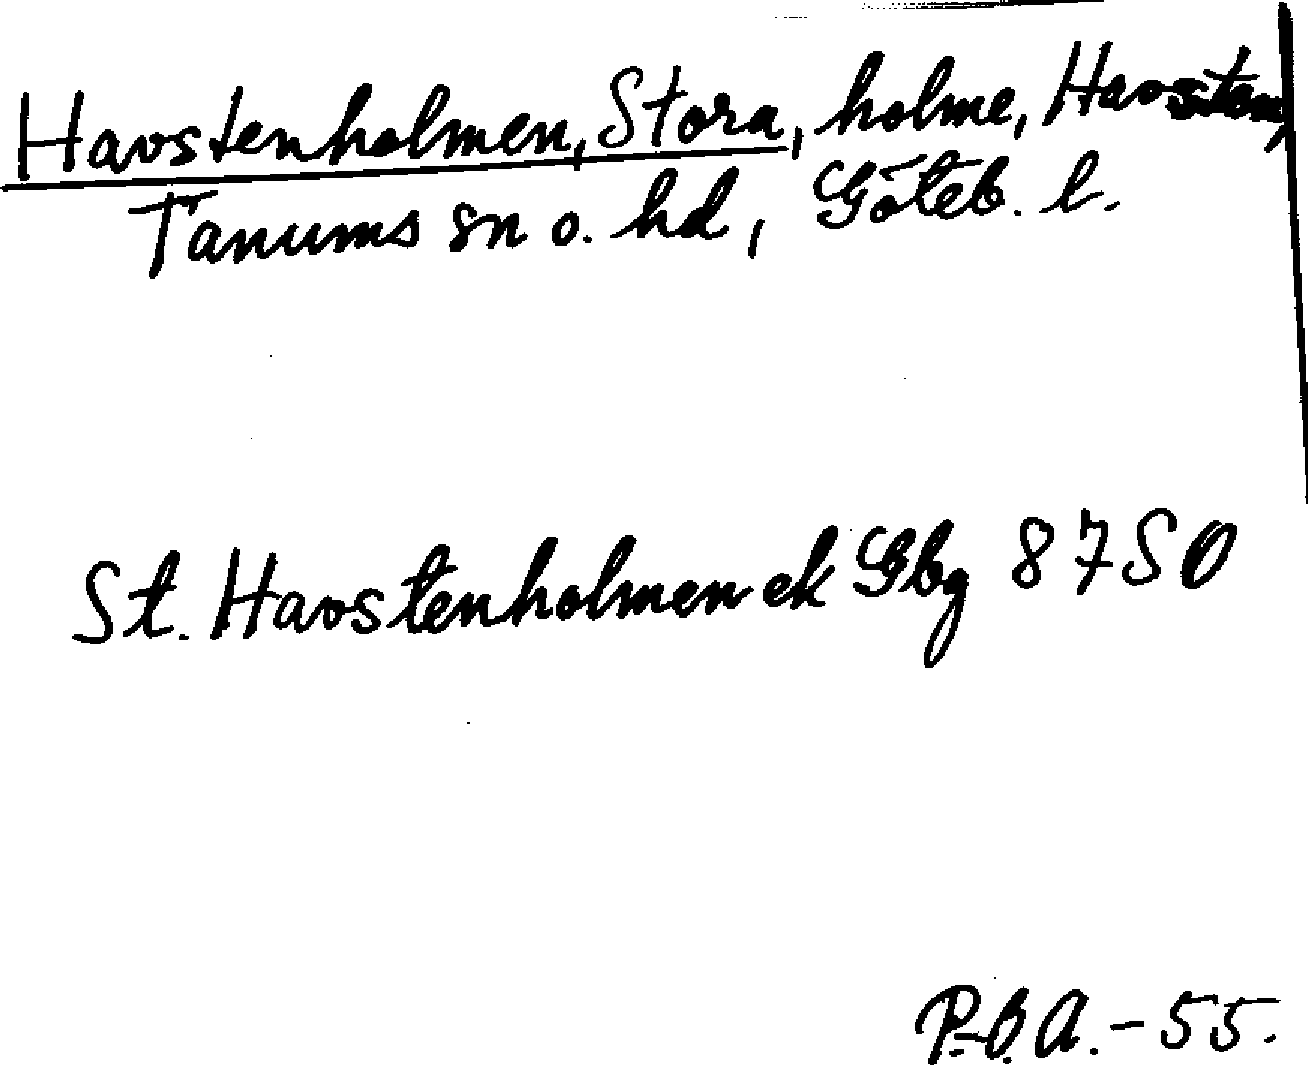 Havstenholmen, Stora, holme, Havsten,
Tanums sn o. hd, Göteb. l.
St. Havstenholmen ek Gbg 87 SO
P.-O. A. - 55.